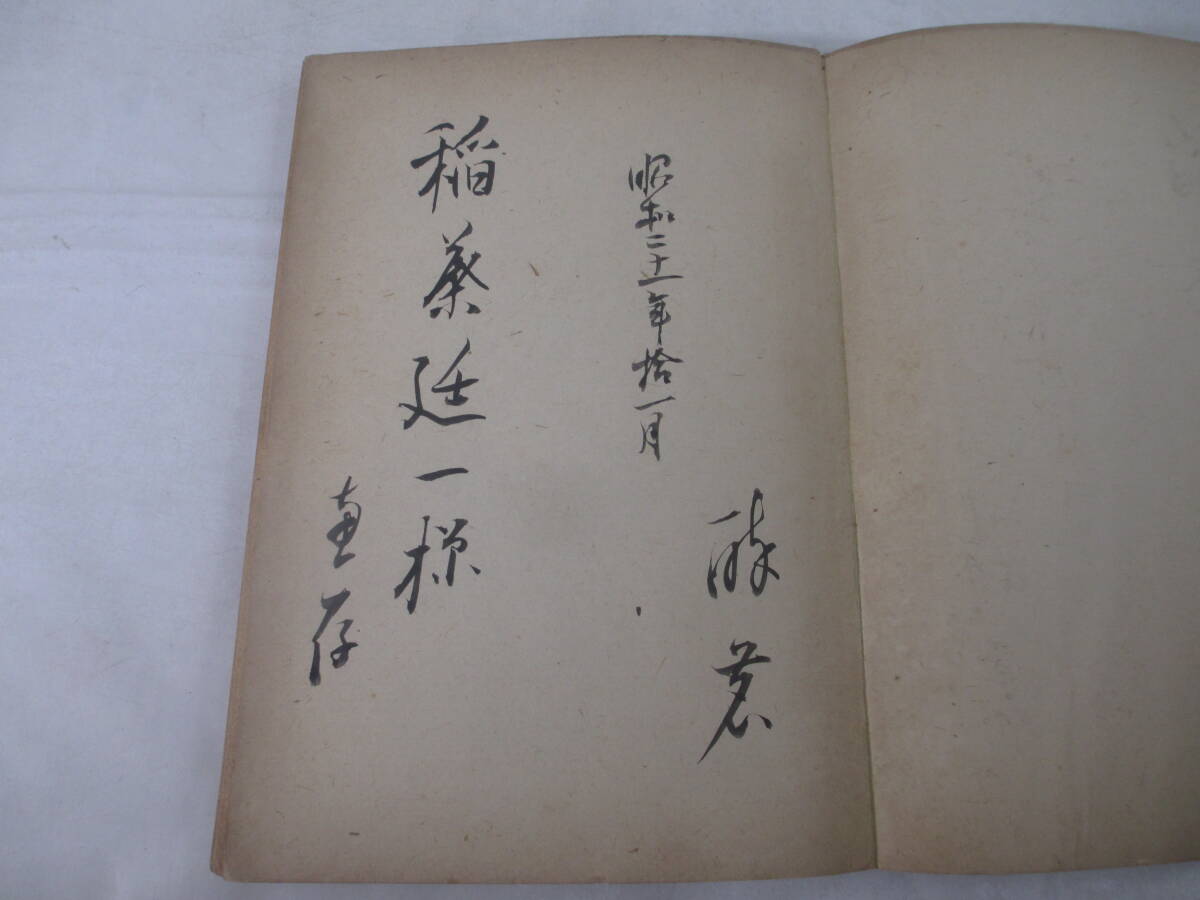 酔茗
昭和二十一年拾一月
稲葉廷一様
恵存